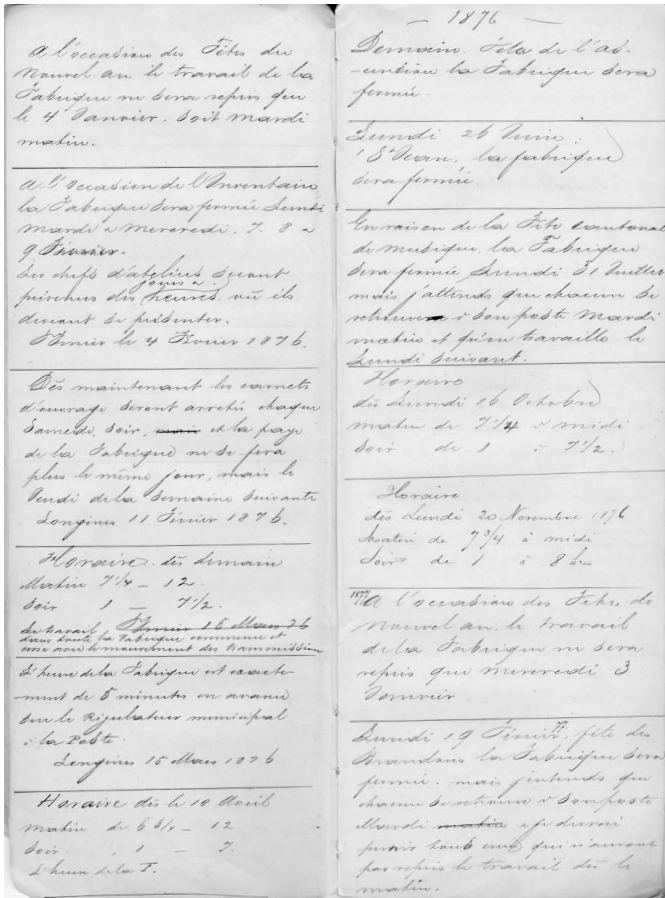 A l'occasion des Fêtes du
Nouvel an le travail de la
Fabrique ne sera repris que
le 4 Janvier. soit mardi
matin.
A l'occasion de l'Inventaire
la Fabrique sera fermée Lundi
Mardi & Mercredi. 7. 8 &
9 Février.
Les chefs d'ateliers seront
prévenus des jours & heures où ils
devront se présenter.
St Imier le 4 Février 1876.
Dès maintenant les carnets
d'ouvrage seront arrêtés chaque
Samedi soir, et la paye
de la Fabrique ne se fera
plus le même jour, mais le
Jeudi de la semaine suivante
Longines 11 Février 1876.
Horaire dès demain
Matin 7 1/4 – 12.
Soir 1 – 7 1/2.
St Imier 15 Mars 76
Le travail
dans toute la Fabrique commence et
cesse avec le mouvement des transmissions
L'heure de la Fabrique est exacte-
-ment de 5 minutes en avance
sur le Régulateur municipal
à la Poste.
Longines 15 Mars 1876
Horaire dès le 10 Avril
Matin de 6 3/4 – 12
Soir " 1 – 7
L'heure de la F.
— 1876 —
Demain. Fête de l'As-
-cension la Fabrique sera
fermée.
Lundi 26 Juin :
St Jean. la fabrique
sera fermée.
En raison de la Fête cantonale
de musique, la Fabrique
sera fermée Lundi 31 Juillet
mais j'attends que chacun se
retrouve à son poste Mardi
matin et qu'on travaille le
Lundi suivant.
Horaire
dès Lundi 16 Octobre
matin de 7 1/4 à midi
soir de 1 à 7 1/2.
Horaire
dès Lundi 20 Novembre 1876
Matin de 7 3/4 à midi
Soir de 1 à 8 hres
1877 A l'occasion des Fêtes de
Nouvel an. le travail
de la Fabrique ne sera
repris que mercredi 3
Janvier
Lundi 19 Février 77. fête des
Brandons la Fabrique sera
fermée. mais j'entends que
chacun se retrouve à son poste
Mardi matin &
tous ceux qui n'auront
pas repris le travail dès le
matin.